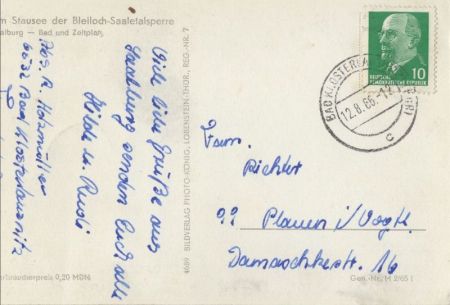 m Stausee der Bleiloch-Saaletalsperre
alburg — Bad und Zeltplatz
Abs. R. Holzmüller
6532 Bad Klosterlausnitz
Viele liebe Grüße aus
Saalburg senden Euch alle
Hilde u. Rudi
4689 BILDVERLAG PHOTO-KÖNIG, LOBENSTEIN-THÜR., REG.-NR. 7
Verbraucherpreis 0,20 MDN
DEUTSCHE
DEMOKRATISCHE REPUBLIK
10
BAD KLOSTERLA
12.8.66.-17
c
Fam.
Richter
99 Plauen i/Vogtl.
Damaschkestr. 16
Gen.-Nr. M 2/65 I